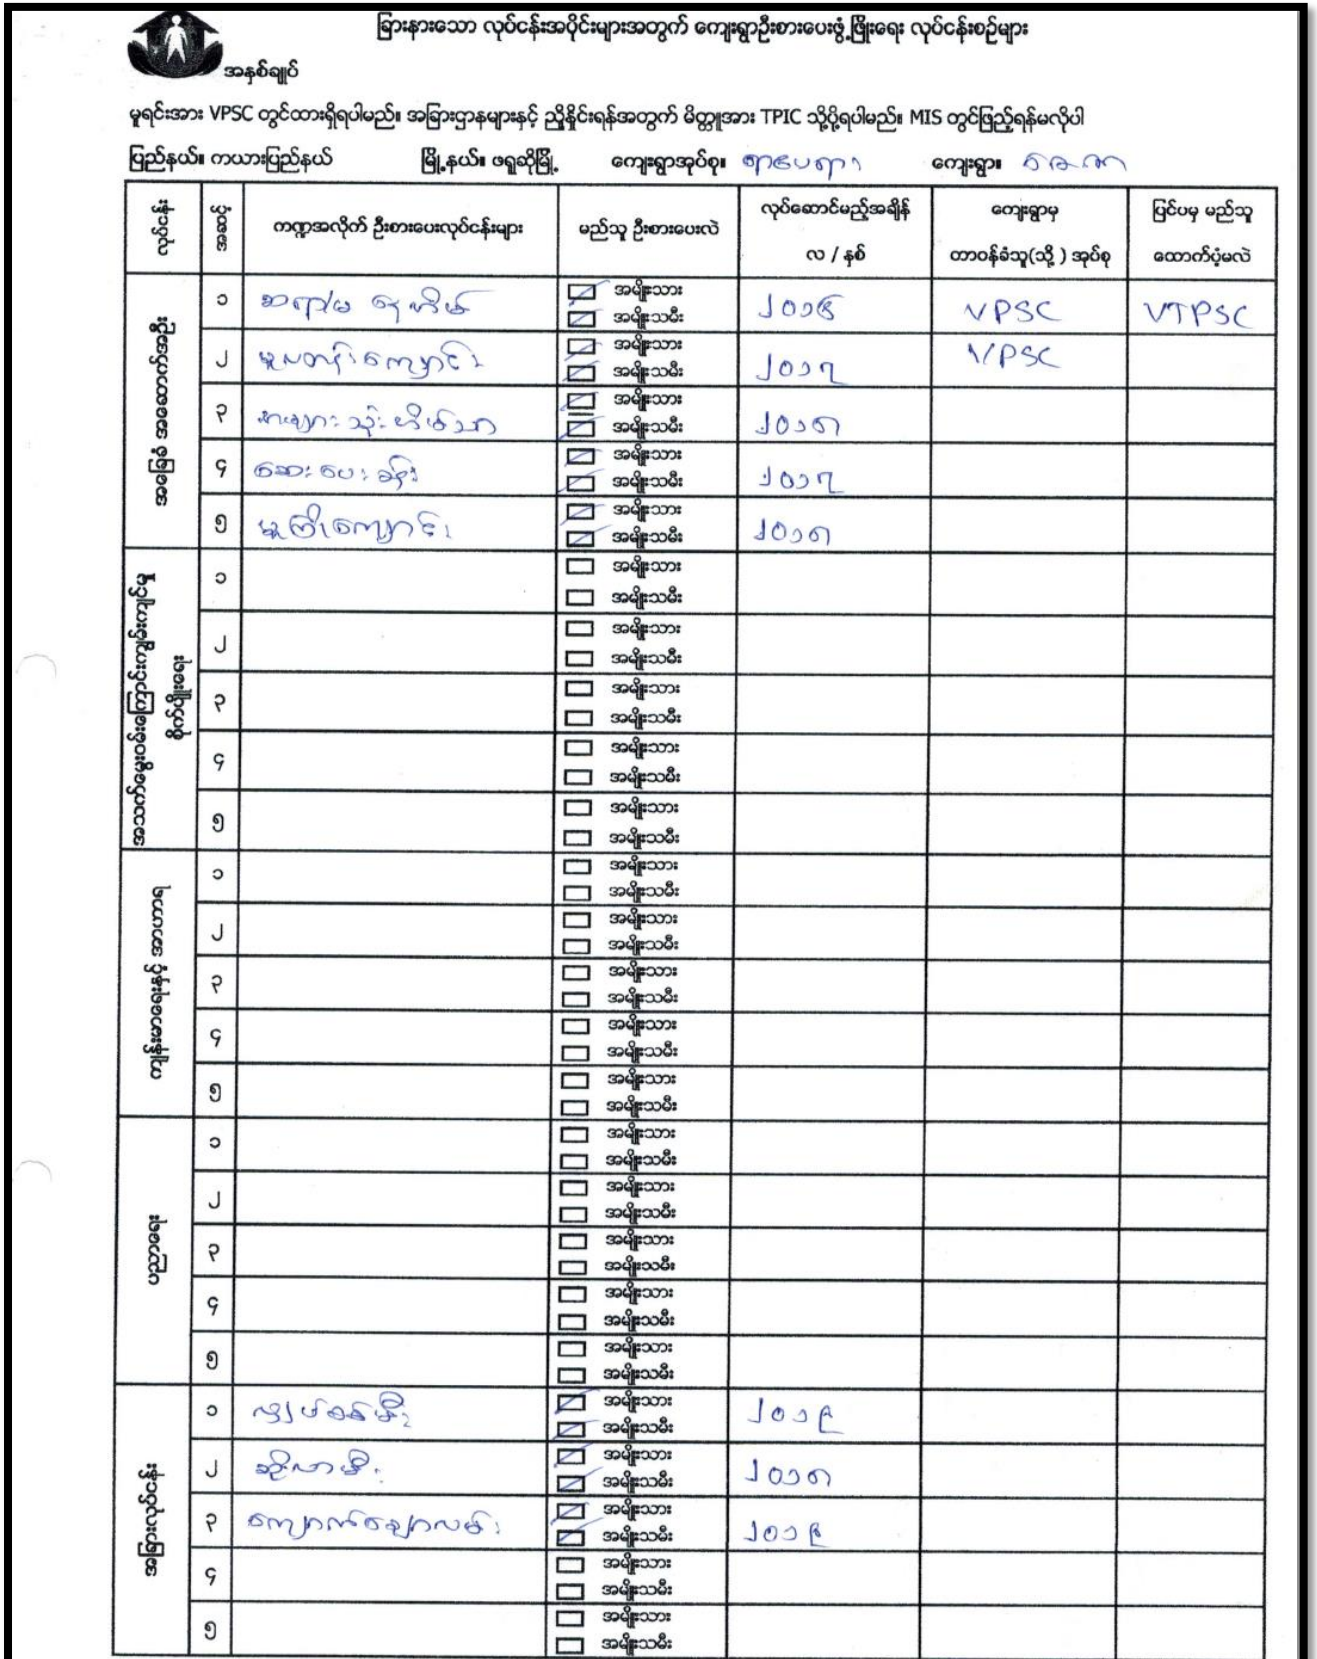 ခြားနားသော လုပ်ငန်းအပိုင်းများအတွက် ကျေးရွာဦးစားပေးဖွံ့ဖြိုးရေး လုပ်ငန်းစဉ်များ
အနှစ်ချုပ်
မူရင်းအား VPSC တွင်ထားရှိရပါမည်။ အခြားဌာနများနှင့် ညှိနှိုင်းရန်အတွက် မိတ္တူအား TPIC သို့ပို့ရပါမည်။ MIS တွင်ဖြည့်ရန်မလိုပါ
ပြည်နယ်။ ကယားပြည်နယ် မြို့နယ်။ ဖရူဆိုမြို့ ကျေးရွာအုပ်စု။ ကျေးရွာ။
လုပ်ငန်း အဆင့် ကဏ္ဍအလိုက် ဦးစားပေးလုပ်ငန်းများ မည်သူ ဦးစားပေးလဲ လုပ်ဆောင်မည့်အချိန် လ / နှစ် ကျေးရွာမှ တာဝန်ခံသူ(သို့ ) အုပ်စု ပြင်ပမှ မည်သူ ထောက်ပံ့မလဲ
အခြေခံ အဆောက်အဦး
၁ ဆရာ/မ နေအိမ် အမျိုးသား ၂၀၁၆ VPSC VTPSC
အမျိုးသမီး
၂ မူလတန်းကျောင်း အမျိုးသား ၂၀၁၇ VPSC
အမျိုးသမီး
၃ အများသုံးအိမ်သာ အမျိုးသား ၂၀၁၈
အမျိုးသမီး
၄ ဆေးပေးခန်း အမျိုးသား ၂၀၁၇
အမျိုးသမီး
၅ မူကြိုကျောင်း အမျိုးသား ၂၀၁၈
အမျိုးသမီး
အသက်မွေးဝမ်းကြောင်းကျွမ်းကျင်မှု
စိုက်ပျိုးရေး
၁ အမျိုးသား
အမျိုးသမီး
၂ အမျိုးသား
အမျိုးသမီး
၃ အမျိုးသား
အမျိုးသမီး
၄ အမျိုးသား
အမျိုးသမီး
၅ အမျိုးသား
အမျိုးသမီး
ကျန်းမာရေးနှင့် အာဟာရ
၁ အမျိုးသား
အမျိုးသမီး
၂ အမျိုးသား
အမျိုးသမီး
၃ အမျိုးသား
အမျိုးသမီး
၄ အမျိုးသား
အမျိုးသမီး
၅ အမျိုးသား
အမျိုးသမီး
ပညာရေး
၁ အမျိုးသား
အမျိုးသမီး
၂ အမျိုးသား
အမျိုးသမီး
၃ အမျိုးသား
အမျိုးသမီး
၄ အမျိုးသား
အမျိုးသမီး
၅ အမျိုးသား
အမျိုးသမီး
အခြားလုပ်ငန်း
၁ လျှပ်စစ်မီး အမျိုးသား ၂၀၁၉
အမျိုးသမီး
၂ ဆိုလာမီး အမျိုးသား ၂၀၁၈
အမျိုးသမီး
၃ ကျောက်ချောလမ်း အမျိုးသား ၂၀၁၉
အမျိုးသမီး
၄ အမျိုးသား
အမျိုးသမီး
၅ အမျိုးသား
အမျိုးသမီး